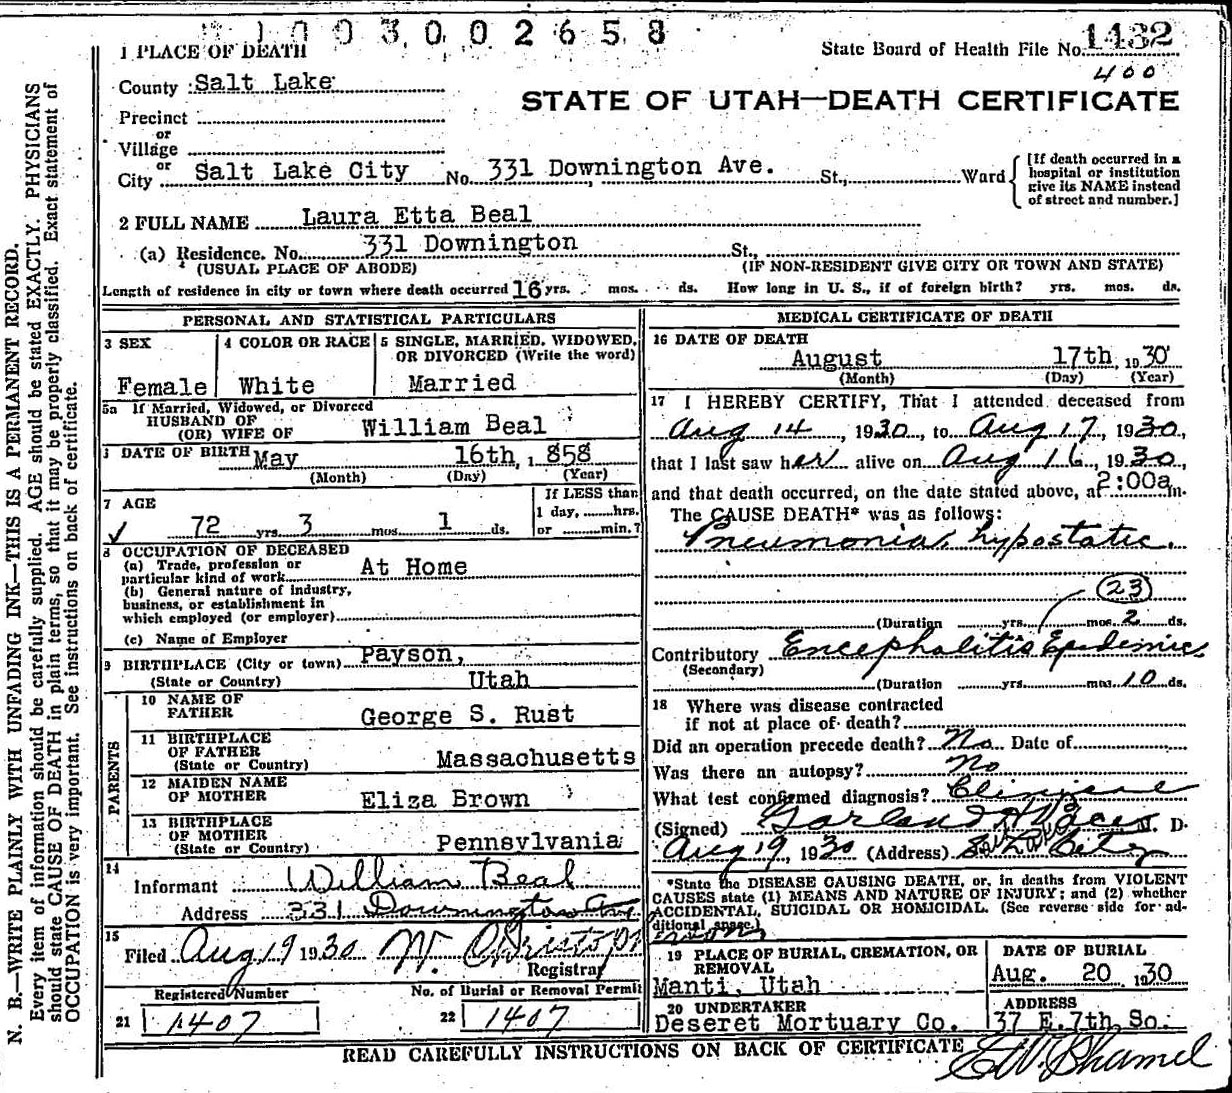 1003002658
1 PLACE OF DEATH
State Board of Health File No. 1432
400
County Salt Lake
STATE OF UTAH—DEATH CERTIFICATE
Precinct
or
Village
or
City Salt Lake City No. 331 Downington Ave. St., Ward
[If death occurred in a
hospital or institution
give its NAME instead
of street and number.]
2 FULL NAME Laura Etta Beal
(a) Residence. No. 331 Downington St.,
(USUAL PLACE OF ABODE) (IF NON-RESIDENT GIVE CITY OR TOWN AND STATE)
Length of residence in city or town where death occurred 16 yrs. mos. ds. How long in U. S., if of foreign birth? yrs. mos. ds.
PERSONAL AND STATISTICAL PARTICULARS
3 SEX 4 COLOR OR RACE 5 SINGLE, MARRIED, WIDOWED,
OR DIVORCED (Write the word)
Female White Married
5a If Married, Widowed, or Divorced
HUSBAND OF
(OR) WIFE OF William Beal
DATE OF BIRTH May 16th, 1858
(Month) (Day) (Year)
7 AGE
If LESS than
1 day, hrs.
or min.?
72 yrs. 3 mos. 1 ds.
8 OCCUPATION OF DECEASED
(a) Trade, profession or
particular kind of work At Home
(b) General nature of industry,
business, or establishment in
which employed (or employer)
(c) Name of Employer
9 BIRTHPLACE (City or town) Payson,
(State or Country) Utah
PARENTS
10 NAME OF
FATHER George S. Rust
11 BIRTHPLACE
OF FATHER
(State or Country) Massachusetts
12 MAIDEN NAME
OF MOTHER Eliza Brown
13 BIRTHPLACE
OF MOTHER
(State or Country) Pennsylvania
14
Informant William Beal
Address 331 Downington Ave
15
Filed Aug 19 1930
Registrar
Registered Number No. of Burial or Removal Permit
21 1407 22 1407
MEDICAL CERTIFICATE OF DEATH
16 DATE OF DEATH
August 17th, 1930
(Month) (Day) (Year)
17 I HEREBY CERTIFY, That I attended deceased from
Aug 14, 1930, to Aug 17, 1930,
that I last saw her alive on Aug 16, 1930,
and that death occurred, on the date stated above, at 2:00a.m.
The CAUSE DEATH* was as follows:
Pneumonia, hypostatic.
23
(Duration yrs. mos. 2 ds.
Contributory Encephalitis Epidemic
(Secondary)
(Duration yrs. mos. 10 ds.
18 Where was disease contracted
if not at place of death?
Did an operation precede death? No Date of
Was there an autopsy? No
What test confirmed diagnosis? Clinical
(Signed) Garland H Pace M. D.
Aug 19, 1930 (Address) Salt Lake City
*State the DISEASE CAUSING DEATH, or, in deaths from VIOLENT
CAUSES state (1) MEANS AND NATURE OF INJURY; and (2) whether
ACCIDENTAL, SUICIDAL OR HOMICIDAL. (See reverse side for ad-
ditional space.)
19 PLACE OF BURIAL, CREMATION, OR
REMOVAL
Manti, Utah
DATE OF BURIAL
Aug. 20 1930
20 UNDERTAKER
Deseret Mortuary Co.
ADDRESS
37 E. 7th So.
READ CAREFULLY INSTRUCTIONS ON BACK OF CERTIFICATE
N. B.—WRITE PLAINLY WITH UNFADING INK—THIS IS A PERMANENT RECORD.
Every item of information should be carefully supplied. AGE should be stated EXACTLY. PHYSICIANS
should state CAUSE OF DEATH in plain terms, so that it may be properly classified. Exact statement of
OCCUPATION is very important. See instructions on back of certificate.